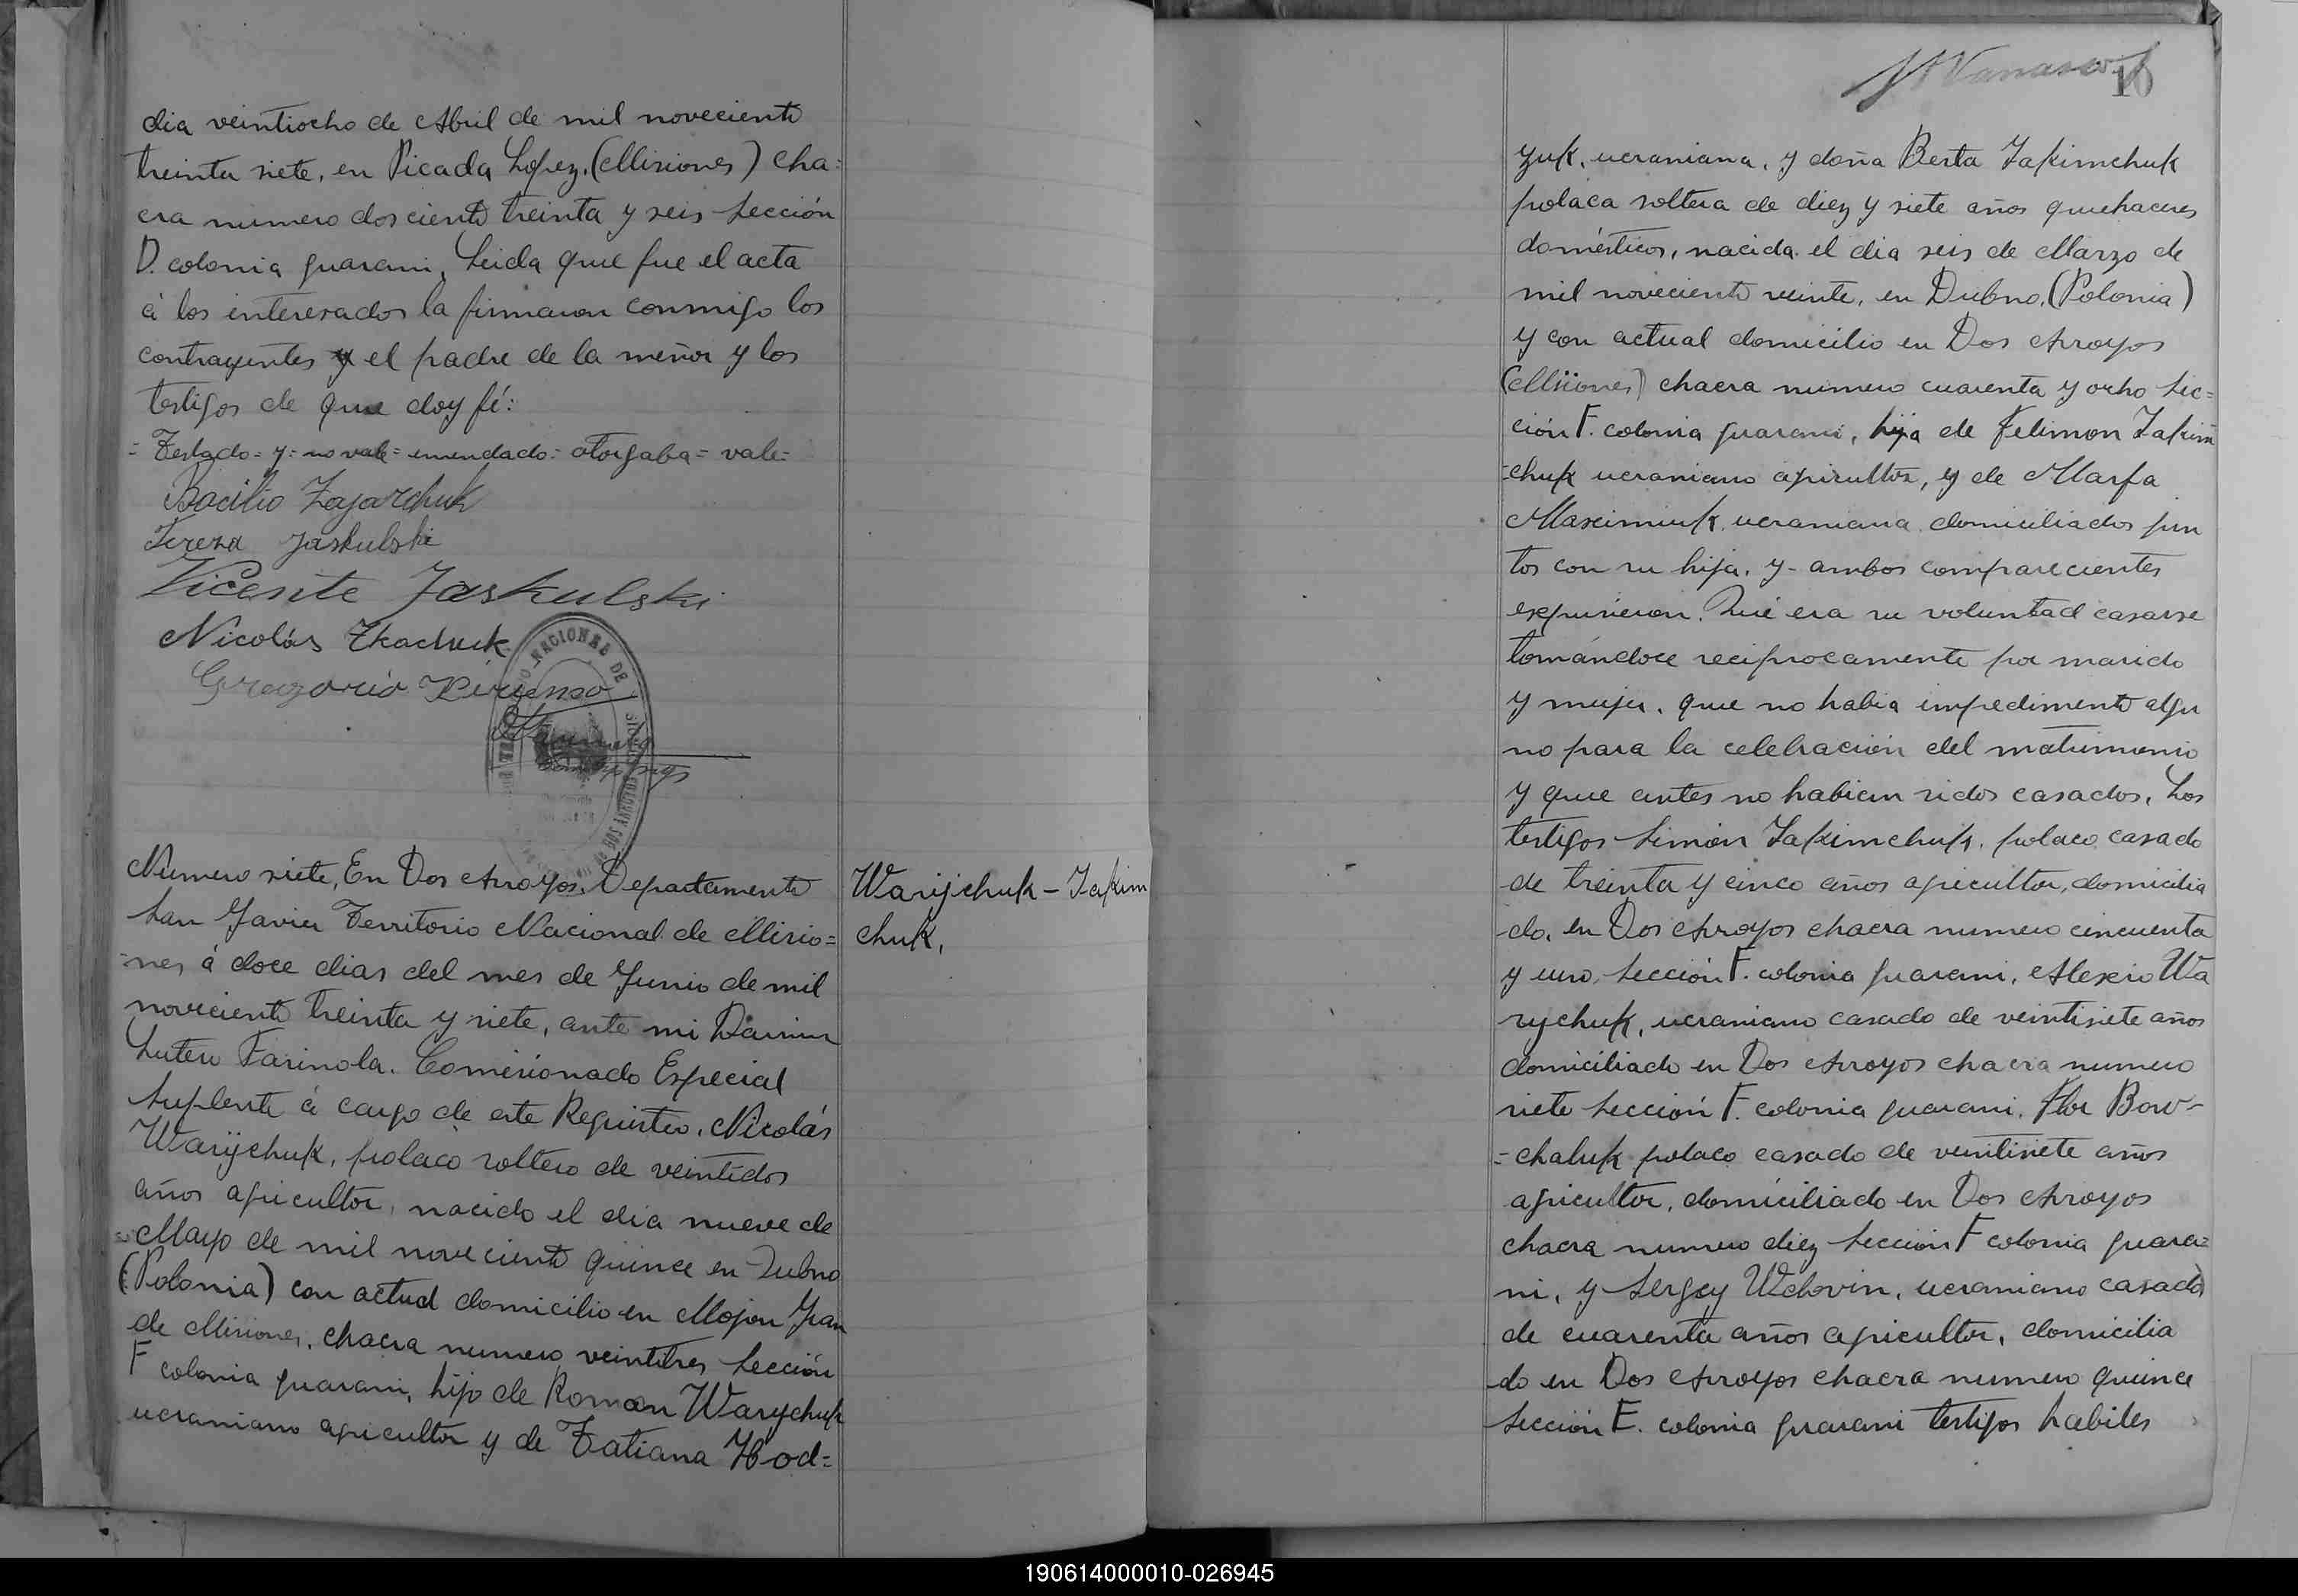 dia veintiocho de Abril de mil noveciento
treinta siete, en Picada Lopez, (Misiones) cha=
cra numero dosciento treinta y seis Sección
D. colonia guarani, Leida que fue el acta
á los interesados la firmaron conmigo los
contrayentes y el padre de la menor y los
testigos de que doy fé:
= Testado = y = no vale = enmendado = otorgaba = vale =
Bacilio Zajarchuk
Tereza Jaskulski
Vicente Jaskulski
Nicolás Tkachuk
Gregorio
Numero siete, En Dos Arroyos, Departamento
San Javier Territorio Nacional de Misio=
=nes á doce dias del mes de Junio de mil
noveciento treinta y siete, ante mi
Lutero Farinola. Comisionado Especial
Suplente á cargo de este Registro, Nicolás
Waryjchuk, polaco soltero de veintidos
años agricultor, nacido el dia nueve de
Mayo de mil noveciento quince en Dubno
(Polonia) con actual domicilio en Mojon Gran
de Misiones, chacra numero veintitres Sección
F colonia guarani, hijo de Roman Warychuk
ucraniano agricultor y de Tatiana Hod=
Waryjchuk - Iakim
chuk,
10
zuk, ucraniana, y doña Berta Iakimchuk
polaca soltera de diez y siete años quehaceres
domésticos, nacida el dia seis de Marzo de
mil noveciento veinte, en Dubno, (Polonia)
y con actual domicilio en Dos Arroyos
(Misiones) chacra numero cuarenta y ocho Sec=
ción F. colonia guarani, hija de Felimon Iakim
=chuk ucraniano agricultor, y de Marfa
Maximiuk, ucraniana domiciliados jun
tos con su hija, y ambos comparecientes
expusieron. Qué era su voluntad casarse
tomándoce reciprocamente por marido
y mujer, que no habia impedimento algu
no para la celebración del matrimonio
y que antes no habian sidos casados, Los
testigos Simón Iakimchuk, polaco casado
de treinta y cinco años agricultor, domicilia
do, en Dos Arroyos chacra numero cincuenta
y uno, Sección F. colonia guarani, Alexio Wa
rychuk, ucraniano casado de veintisiete años
domiciliado en Dos Arroyos chacra numero
siete Sección F. colonia guarani, Flor Bow-
=chaluk polaco casado de veintisiete años
agricultor, domiciliado en Dos Arroyos
chacra numero diez Sección F colonia guara=
ni, y Sergey Wdovin, ucraniano casado
de cuarenta años agricultor, domicilia
do en Dos Arroyos chacra numero quince
Sección F. colonia guarani testigos habiles
190614000010-026945